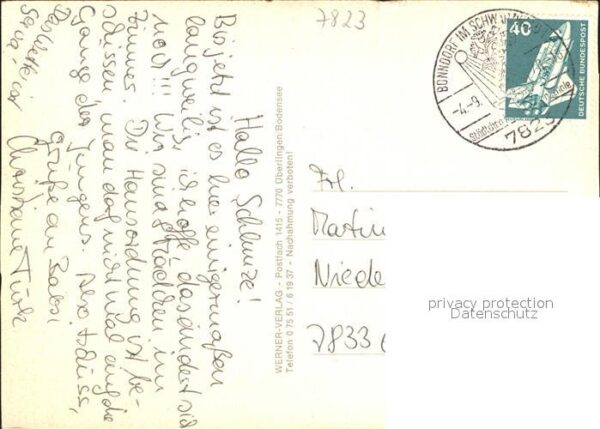 7823
BONNDORF IM SCHWARZWALD
-4.-9.
7823
40
DEUTSCHE BUNDESPOST
Hallo Schnuze!
Bis jetzt ist es hier einigermaßen
langweilig, ich hoffe das ändert sich
noch!!! Wir sind Mädchen im
Zimmer. Die Hausordnung ist be-
schissen, man darf nicht mal auf die
Gänge der Jungens. Also tschüss,
Grüße an Babsi
Christiane Türk
WERNER-VERLAG - Postfach 1415 - 7770 Überlingen/Bodensee
Telefon 0 75 51 / 6 19 37 - Nachahmung verboten!
Frl.
Martin
Niede
7833
privacy protection
Datenschutz